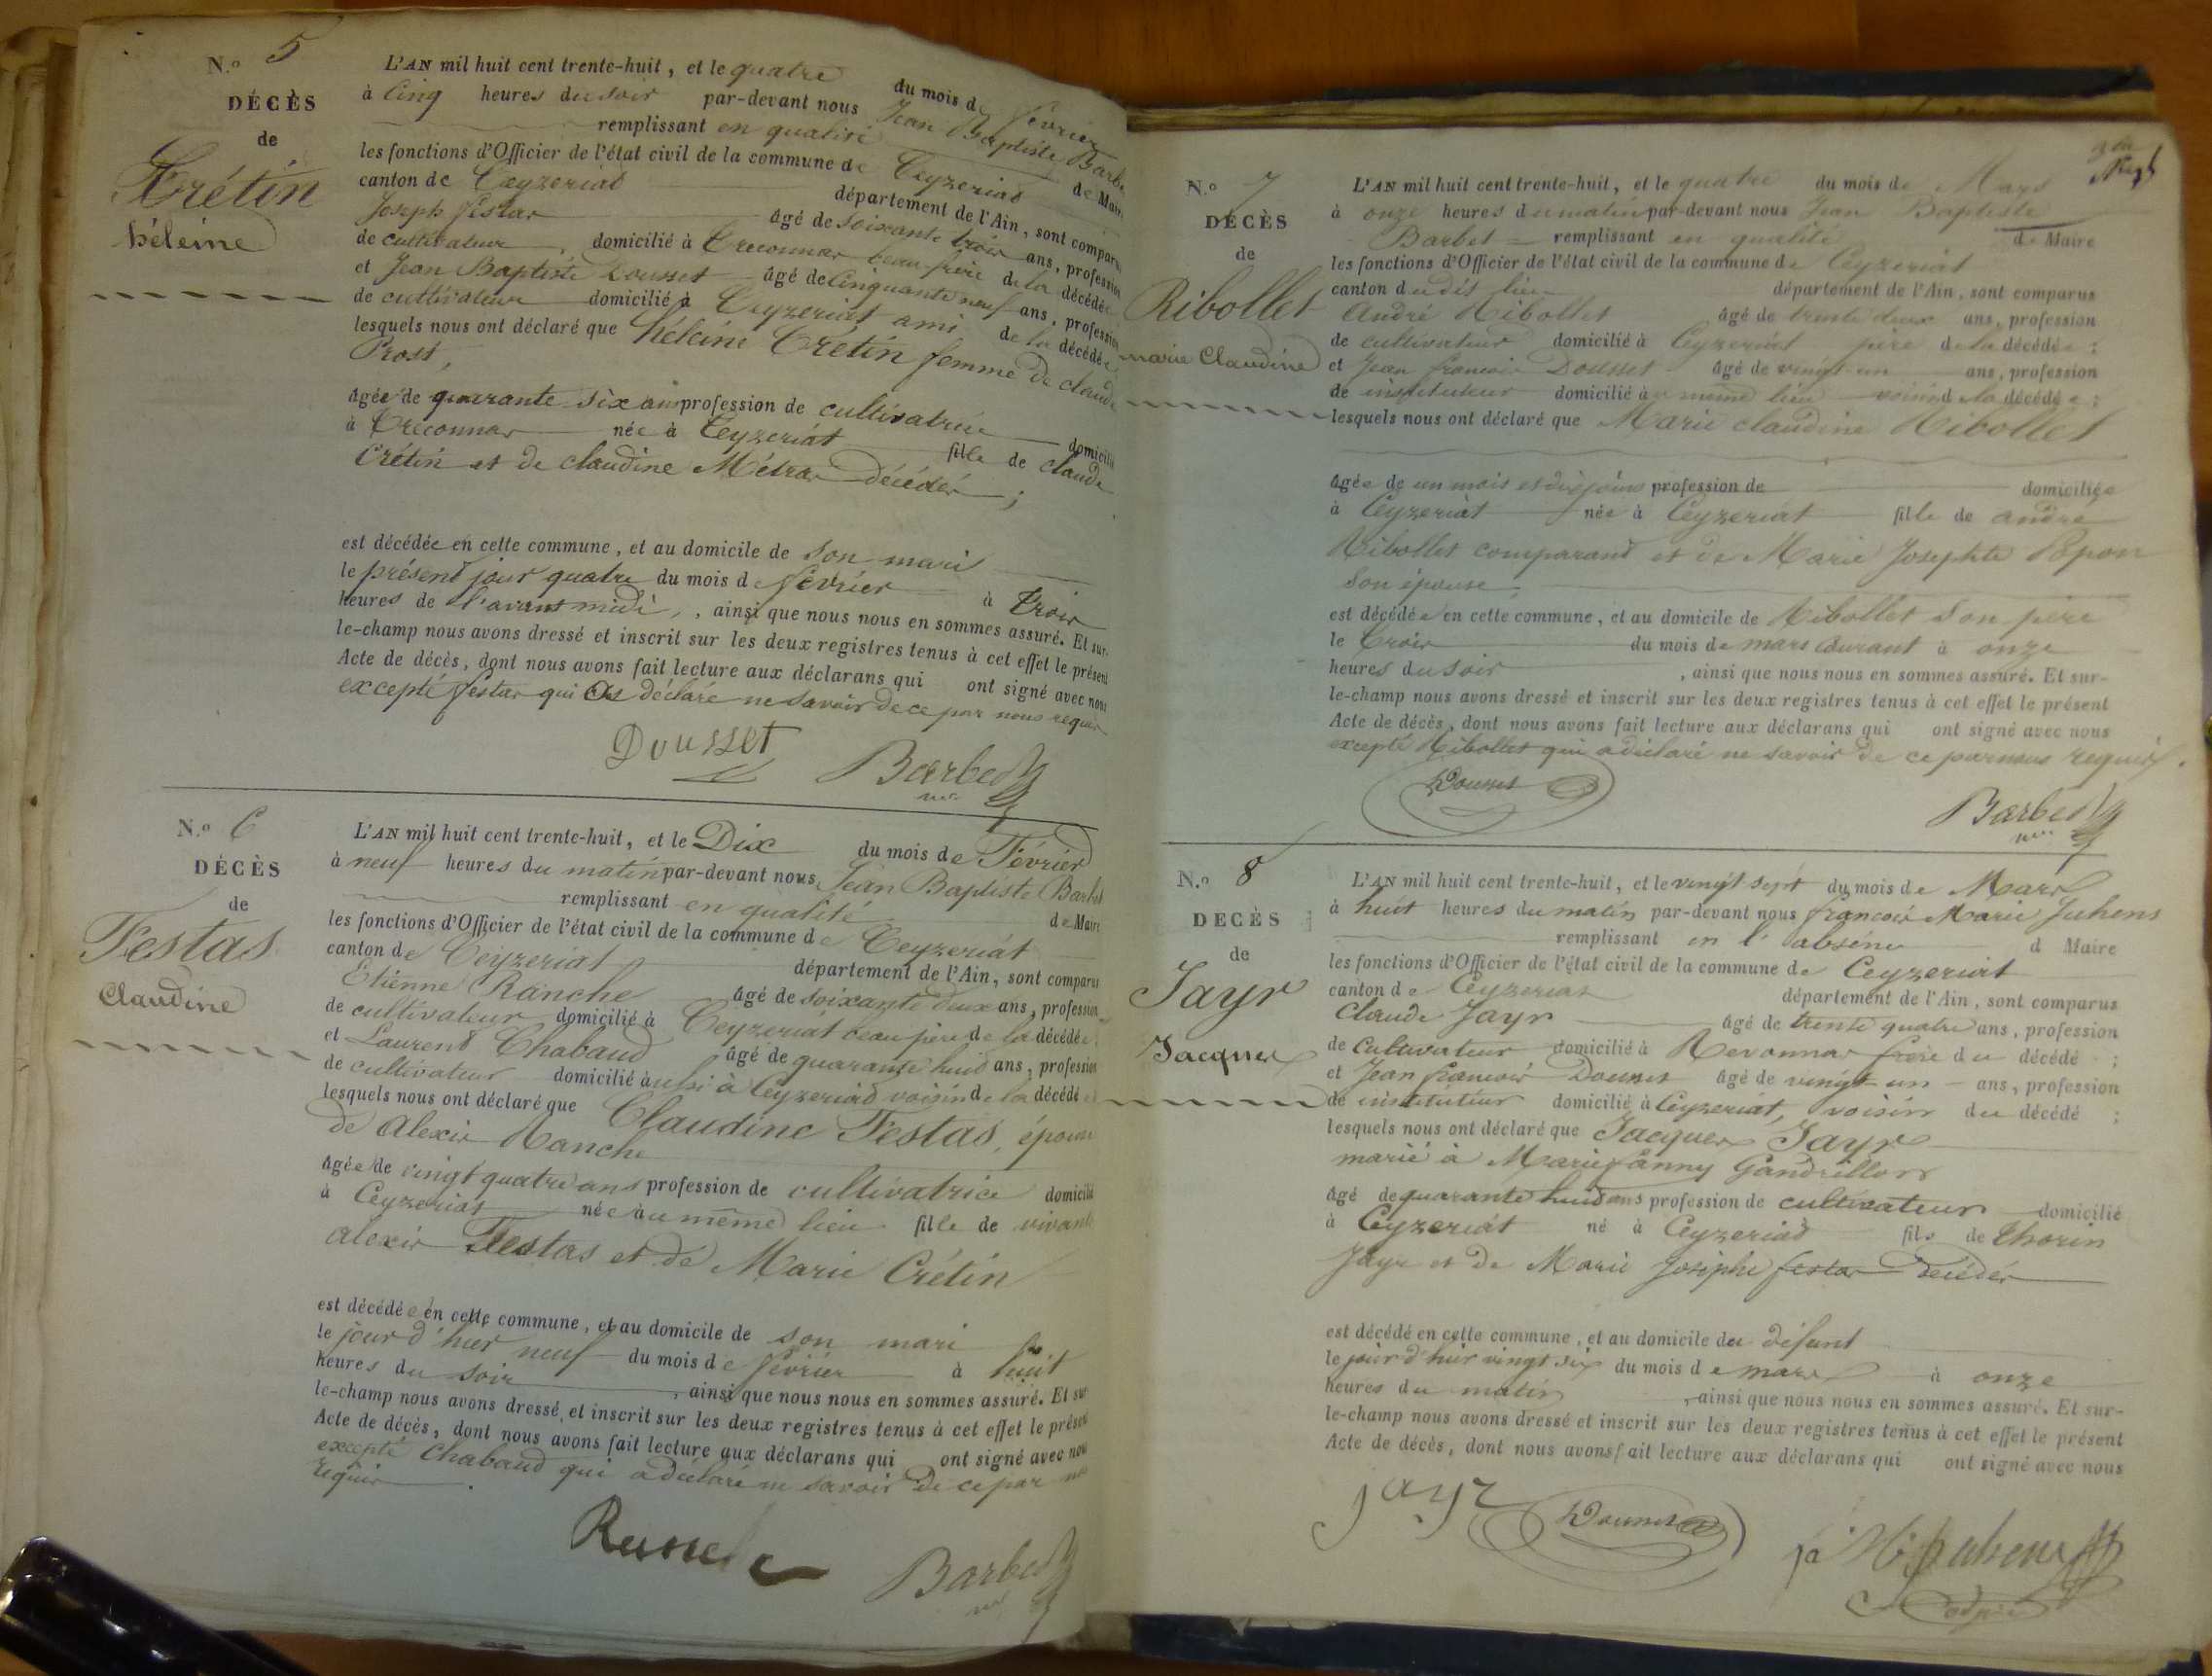 N.o 5
DÉCÈS
de
Crétin
héleine
L'AN mil huit cent trente-huit, et le quatre du mois de février
à Cinq heures du soir par-devant nous Jean Baptiste Barbet
remplissant en qualité de Maire
les fonctions d'Officier de l'état civil de la commune de Ceyzeriat
canton de Ceyzeriat département de l'Ain, sont comparus
Joseph festas âgé de soixante trois ans, profession
de cultivateur, domicilié à Treconnas beau frère de la décédée
et Jean Baptiste Dousset âgé de Cinquante neuf ans, profession
de cultivateur domicilié à Ceyzeriat ami de la décédée
lesquels nous ont déclaré que héleine Crétin femme de claude
Prost,
âgée de quarante six ans profession de cultivatrice domicilié
à Treconnas née à Ceyzeriat fille de claude
Crétin et de claudine Métras décédés ;
est décédée en cette commune, et au domicile de son mari
le présent jour quatre du mois de février à trois
heures de l'avant midi, , ainsi que nous nous en sommes assuré. Et sur-
le-champ nous avons dressé et inscrit sur les deux registres tenus à cet effet le présent
Acte de décès, dont nous avons fait lecture aux déclarans qui ont signé avec nous
excepté festas qui a déclaré ne savoir de ce par nous requis
Dousset Barbet
N.o 6
DÉCÈS
de
Festas
Claudine
L'AN mil huit cent trente-huit, et le Dix du mois de Février
à neuf heures du matin par-devant nous Jean Baptiste Barbet
remplissant en qualité de Maire
les fonctions d'Officier de l'état civil de la commune de Ceyzeriat
canton de Ceyzeriat département de l'Ain, sont comparus
Etienne Ranche âgé de soixante deux ans, profession
de cultivateur domicilié à Ceyzeriat beau père de la décédée
et Laurent Chabaud âgé de quarante huit ans, profession
de cultivateur domicilié aussi à Ceyzeriat voisin de la décédée
lesquels nous ont déclaré que Claudine Festas, épouse
de Alexis Ranche
âgée de vingt quatre ans profession de cultivatrice domicilié
à Ceyzeriat née au même lieu fille de vivants
alexis Festas et de Marie Crétin
est décédée en cette commune, et au domicile de son mari
le jour d'hier neuf du mois de février à huit
heures du soir , ainsi que nous nous en sommes assuré. Et sur
le-champ nous avons dressé et inscrit sur les deux registres tenus à cet effet le présent
Acte de décès, dont nous avons fait lecture aux déclarans qui ont signé avec nous
excepté Chabaud qui a déclaré ne savoir de ce par nous
requis.
Ranche Barbet
N.o 7
DÉCÈS
de
Ribollet
marie Claudine
L'AN mil huit cent trente-huit, et le quatre du mois de Mars
à onze heures du matin par-devant nous Jean Baptiste
Barbet remplissant en qualité de Maire
les fonctions d'Officier de l'état civil de la commune de Ceyzeriat
canton du dit lieu département de l'Ain, sont comparus
André Ribollet âgé de trente deux ans, profession
de cultivateur domicilié à Ceyzeriat père de la décédée ;
et Jean francois Dousset âgé de vingt-un ans, profession
de instituteur domicilié au même lieu voisin de la décédée ;
lesquels nous ont déclaré que Marie claudine Ribollet
âgée de un mois et dix jours profession de domiciliée
à Ceyzeriat née à Ceyzeriat fille de andre
Ribollet comparant et de Marie Josephte Popon
son épouse
est décédée en cette commune, et au domicile de Ribollet son père
le trois du mois de mars courant à onze
heures du soir , ainsi que nous nous en sommes assuré. Et sur-
le-champ nous avons dressé et inscrit sur les deux registres tenus à cet effet le présent
Acte de décès, dont nous avons fait lecture aux déclarans qui ont signé avec nous
excepté Ribollet qui a déclaré ne savoir de ce par nous requis.
Dousset
Barbet
N.o 8
DÉCÈS
de
Jayr
Jacques
L'AN mil huit cent trente-huit, et le vingt sept du mois de Mars
à huit heures du matin par-devant nous francois Marie Juhens
remplissant en l'absence d Maire
les fonctions d'Officier de l'état civil de la commune de Ceyzeriat
canton de Ceyzeriat département de l'Ain, sont comparus
Claude Jayr âgé de trente quatre ans, profession
de Cultivateur domicilié à Revonnas frère du décédé ;
et Jean francois Dousset âgé de vingt-un ans, profession
de instituteur domicilié à Ceyzeriat, voisin du décédé ;
lesquels nous ont déclaré que Jacques Jayr
marié à Marie fanny Gandrillon
âgé de quarante huit ans profession de cultivateur domicilié
à Ceyzeriat né à Ceyzeriat fils de Thorin
Jayr et de Marie Josephe festas décédés
est décédé en cette commune, et au domicile du défunt
le jour d'hier vingt six du mois de mars à onze
heures du matin , ainsi que nous nous en sommes assuré. Et sur-
le-champ nous avons dressé et inscrit sur les deux registres tenus à cet effet le présent
Acte de décès, dont nous avons fait lecture aux déclarans qui ont signé avec nous
jayr Dousset